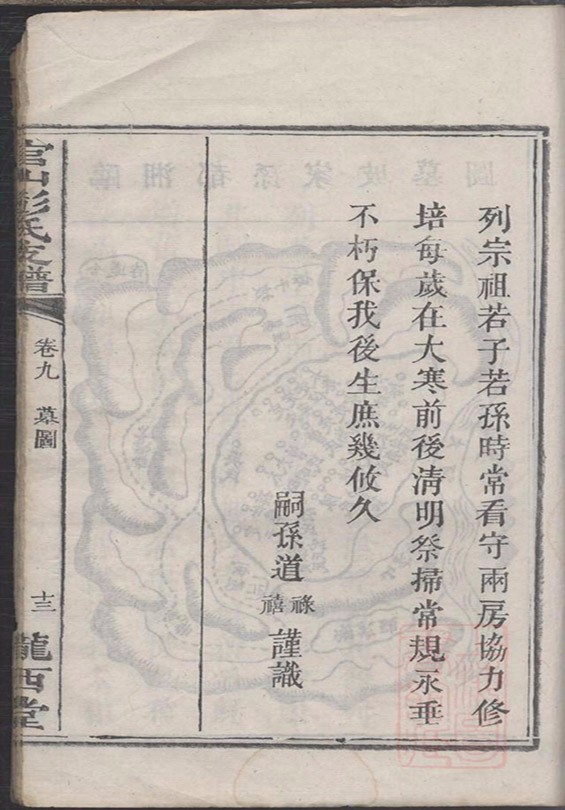 列宗祖若子若孫時常看守兩房協力修
培每歲在大寒前後清明祭掃常規永垂
不朽保我後生庶幾攸久
嗣孫道祿禧謹識
官山彭氏支譜
卷九 墓圖
十三
隴西堂